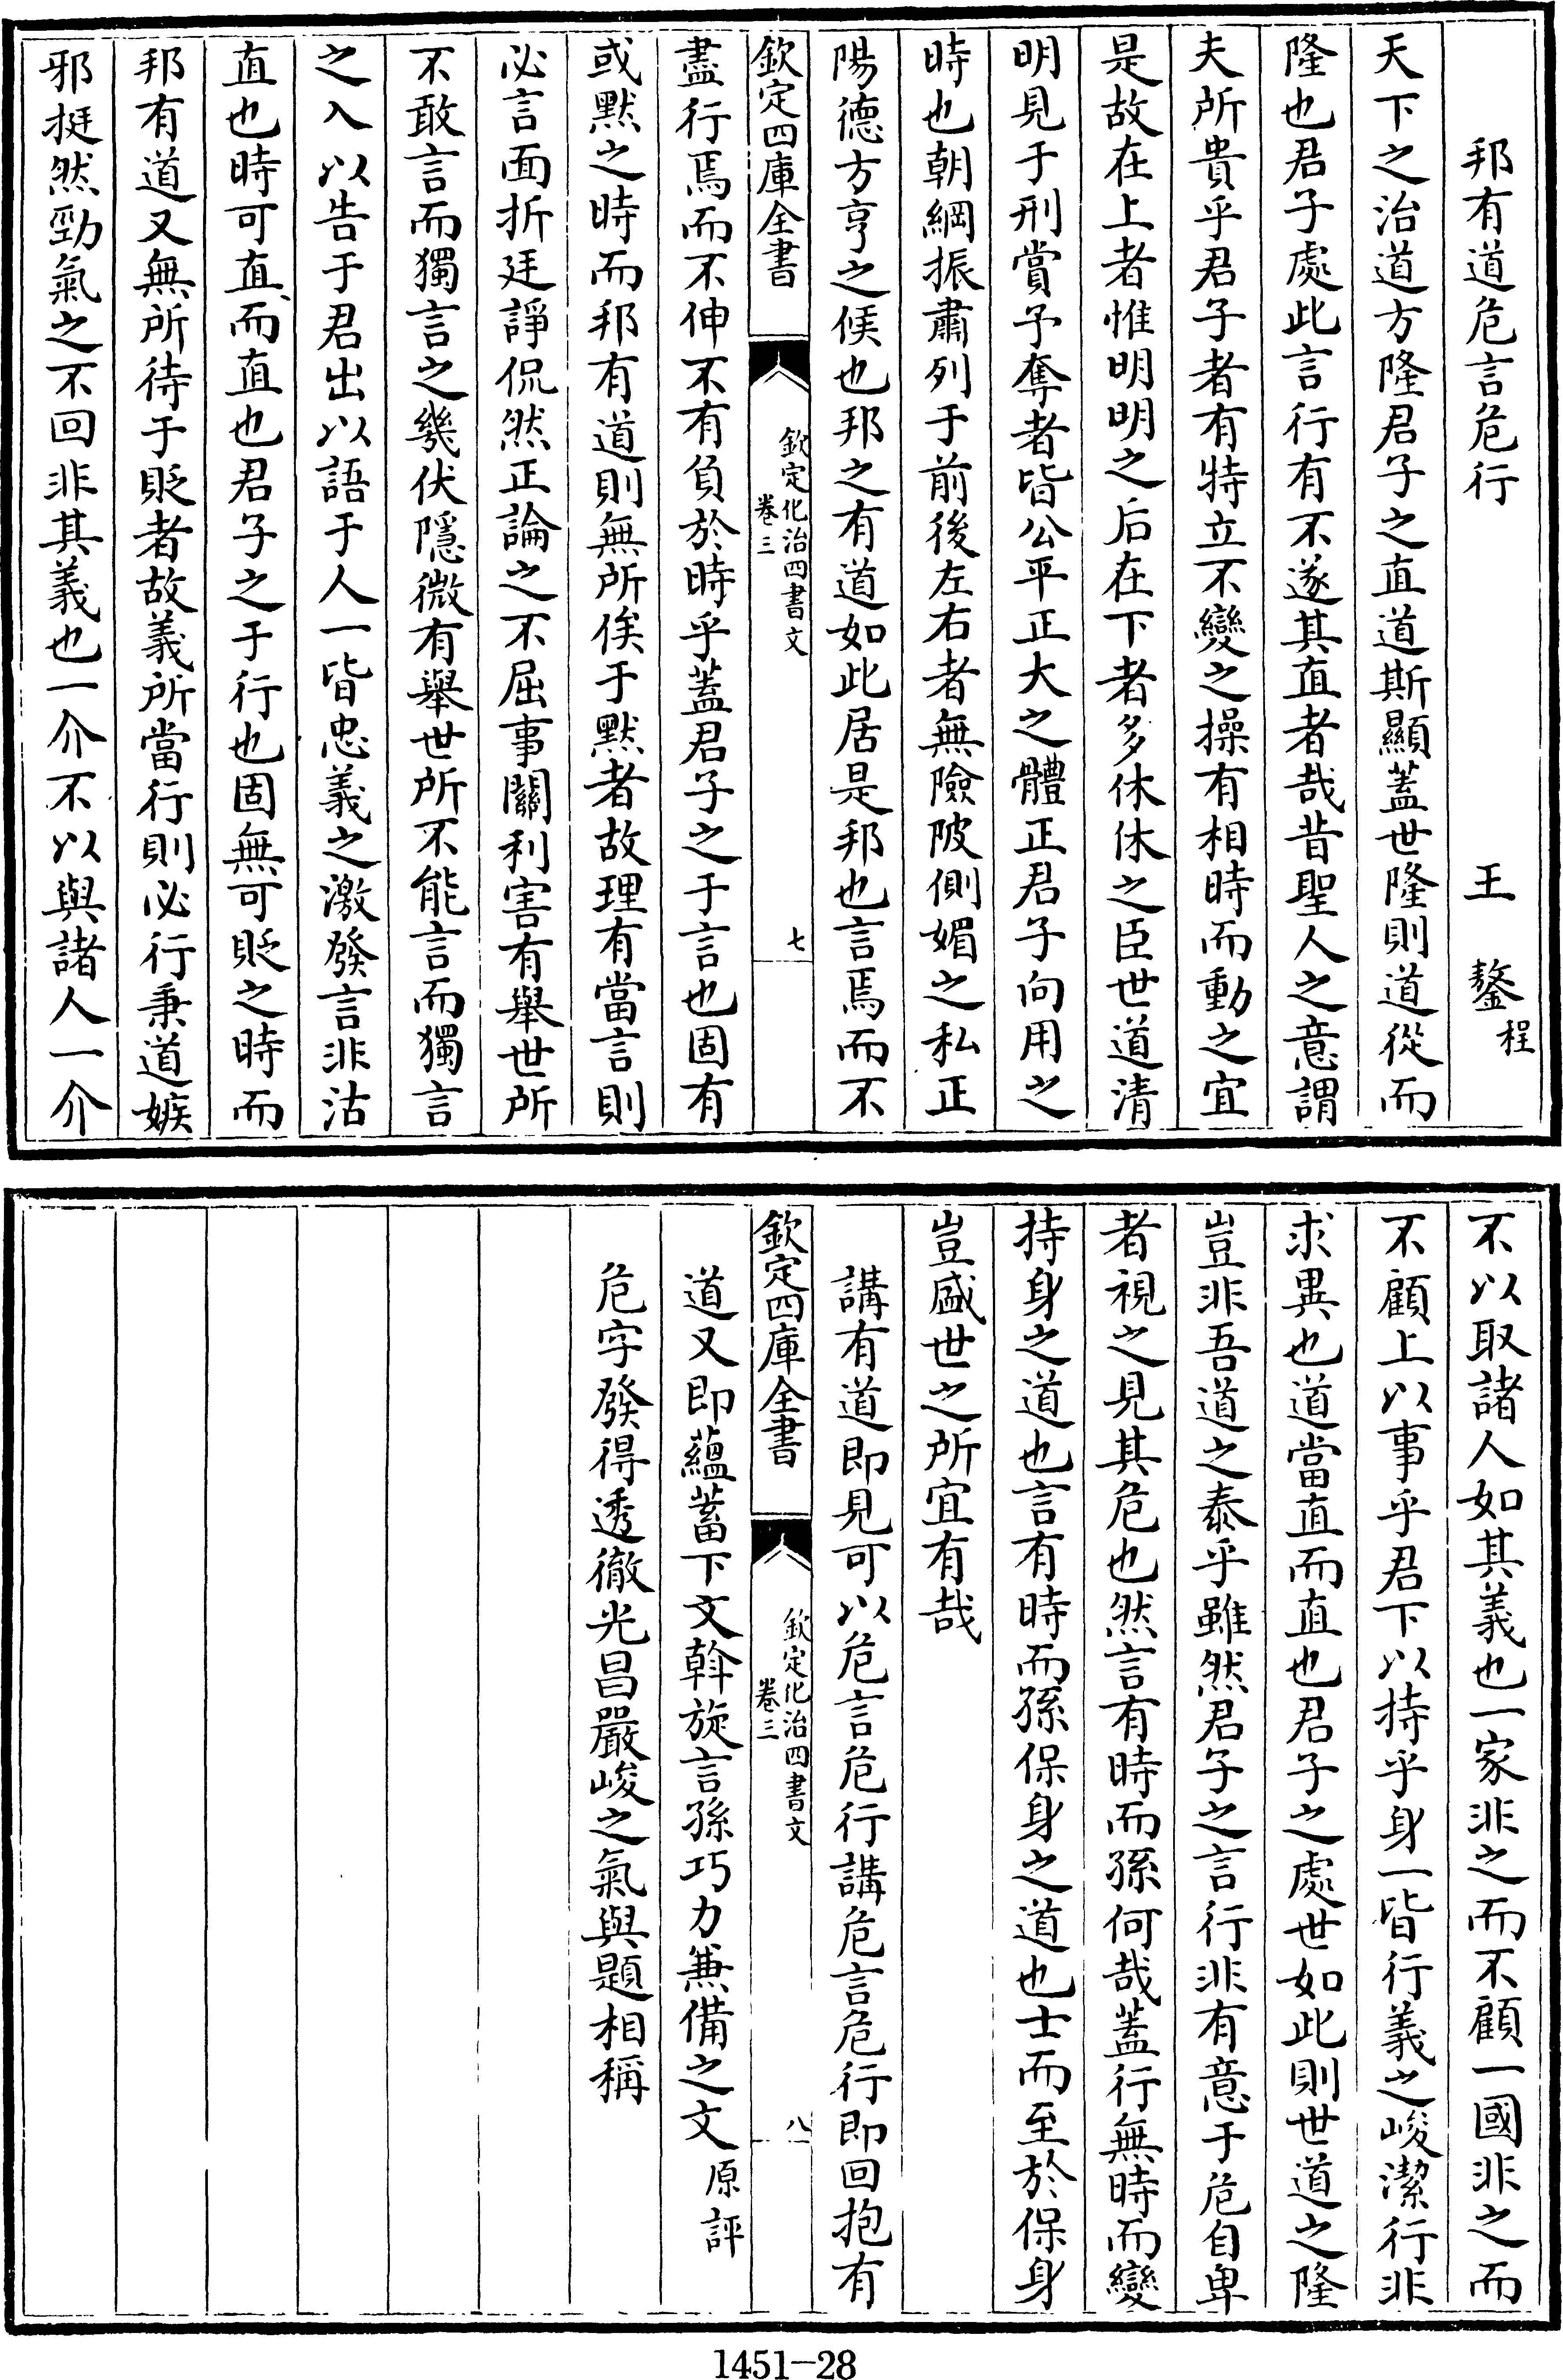 邦有道危言危行　王　鏊程
天下之治道方隆君子之直道斯顯蓋世隆則道從而
隆也君子處此言行有不遂其直者哉昔聖人之意謂
夫所貴乎君子者有特立不變之操有相時而動之宜
是故在上者惟明明之后在下者多休休之臣世道清
明見于刑賞予奪者皆公平正大之體正君子向用之
時也朝綱振肅列于前後左右者無險陂側媚之私正
陽德方亨之候也邦之有道如此居是邦也言焉而不
欽定四庫全書　欽定化治四書文　卷三　七
盡行焉而不伸不有負於時乎蓋君子之于言也固有
或默之時而邦有道則無所俟于默者故理有當言則
必言面折廷諍侃然正論之不屈事關利害有舉世所
不敢言而獨言之幾伏隱微有舉世所不能言而獨言
之入以告于君出以語于人一皆忠義之激發言非沽
直也時可直而直也君子之于行也固無可貶之時而
邦有道又無所待于貶者故義所當行則必行秉道嫉
邪挺然勁氣之不回非其義也一介不以與諸人一介
不以取諸人如其義也一家非之而不顧一國非之而
不顧上以事乎君下以持乎身一皆行義之峻潔行非
求異也道當直而直也君子之處世如此則世道之隆
豈非吾道之泰乎雖然君子之言行非有意于危自卑
者視之見其危也然言有時而孫何哉蓋行無時而變
持身之道也言有時而孫保身之道也士而至於保身
豈盛世之所宜有哉
講有道即見可以危言危行講危言危行即回抱有
欽定四庫全書　欽定化治四書文　卷三　八
道又即蘊蓄下文斡旋言孫巧力兼備之文原評
危字發得透徹光昌嚴峻之氣與題相稱
1451—28